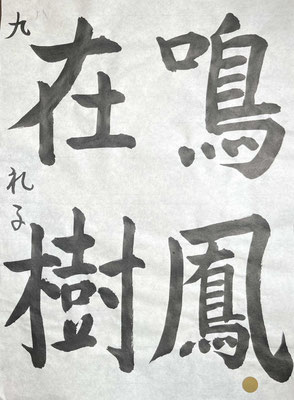 鳴鳳
在樹
九 礼子